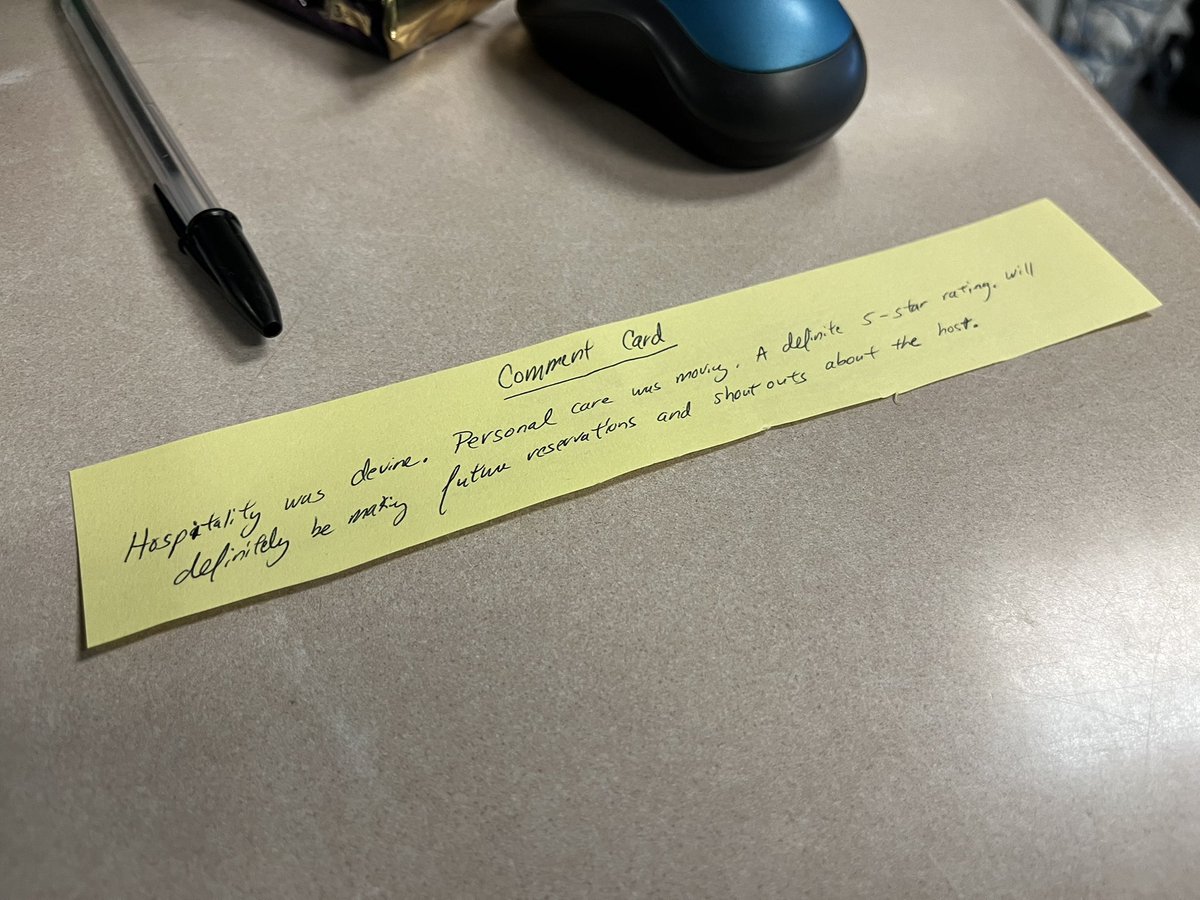 Comment Card
Hospitality was devine. Personal care was moving. A definite 5-star rating. will
definitely be making future reservations and shout outs about the host.